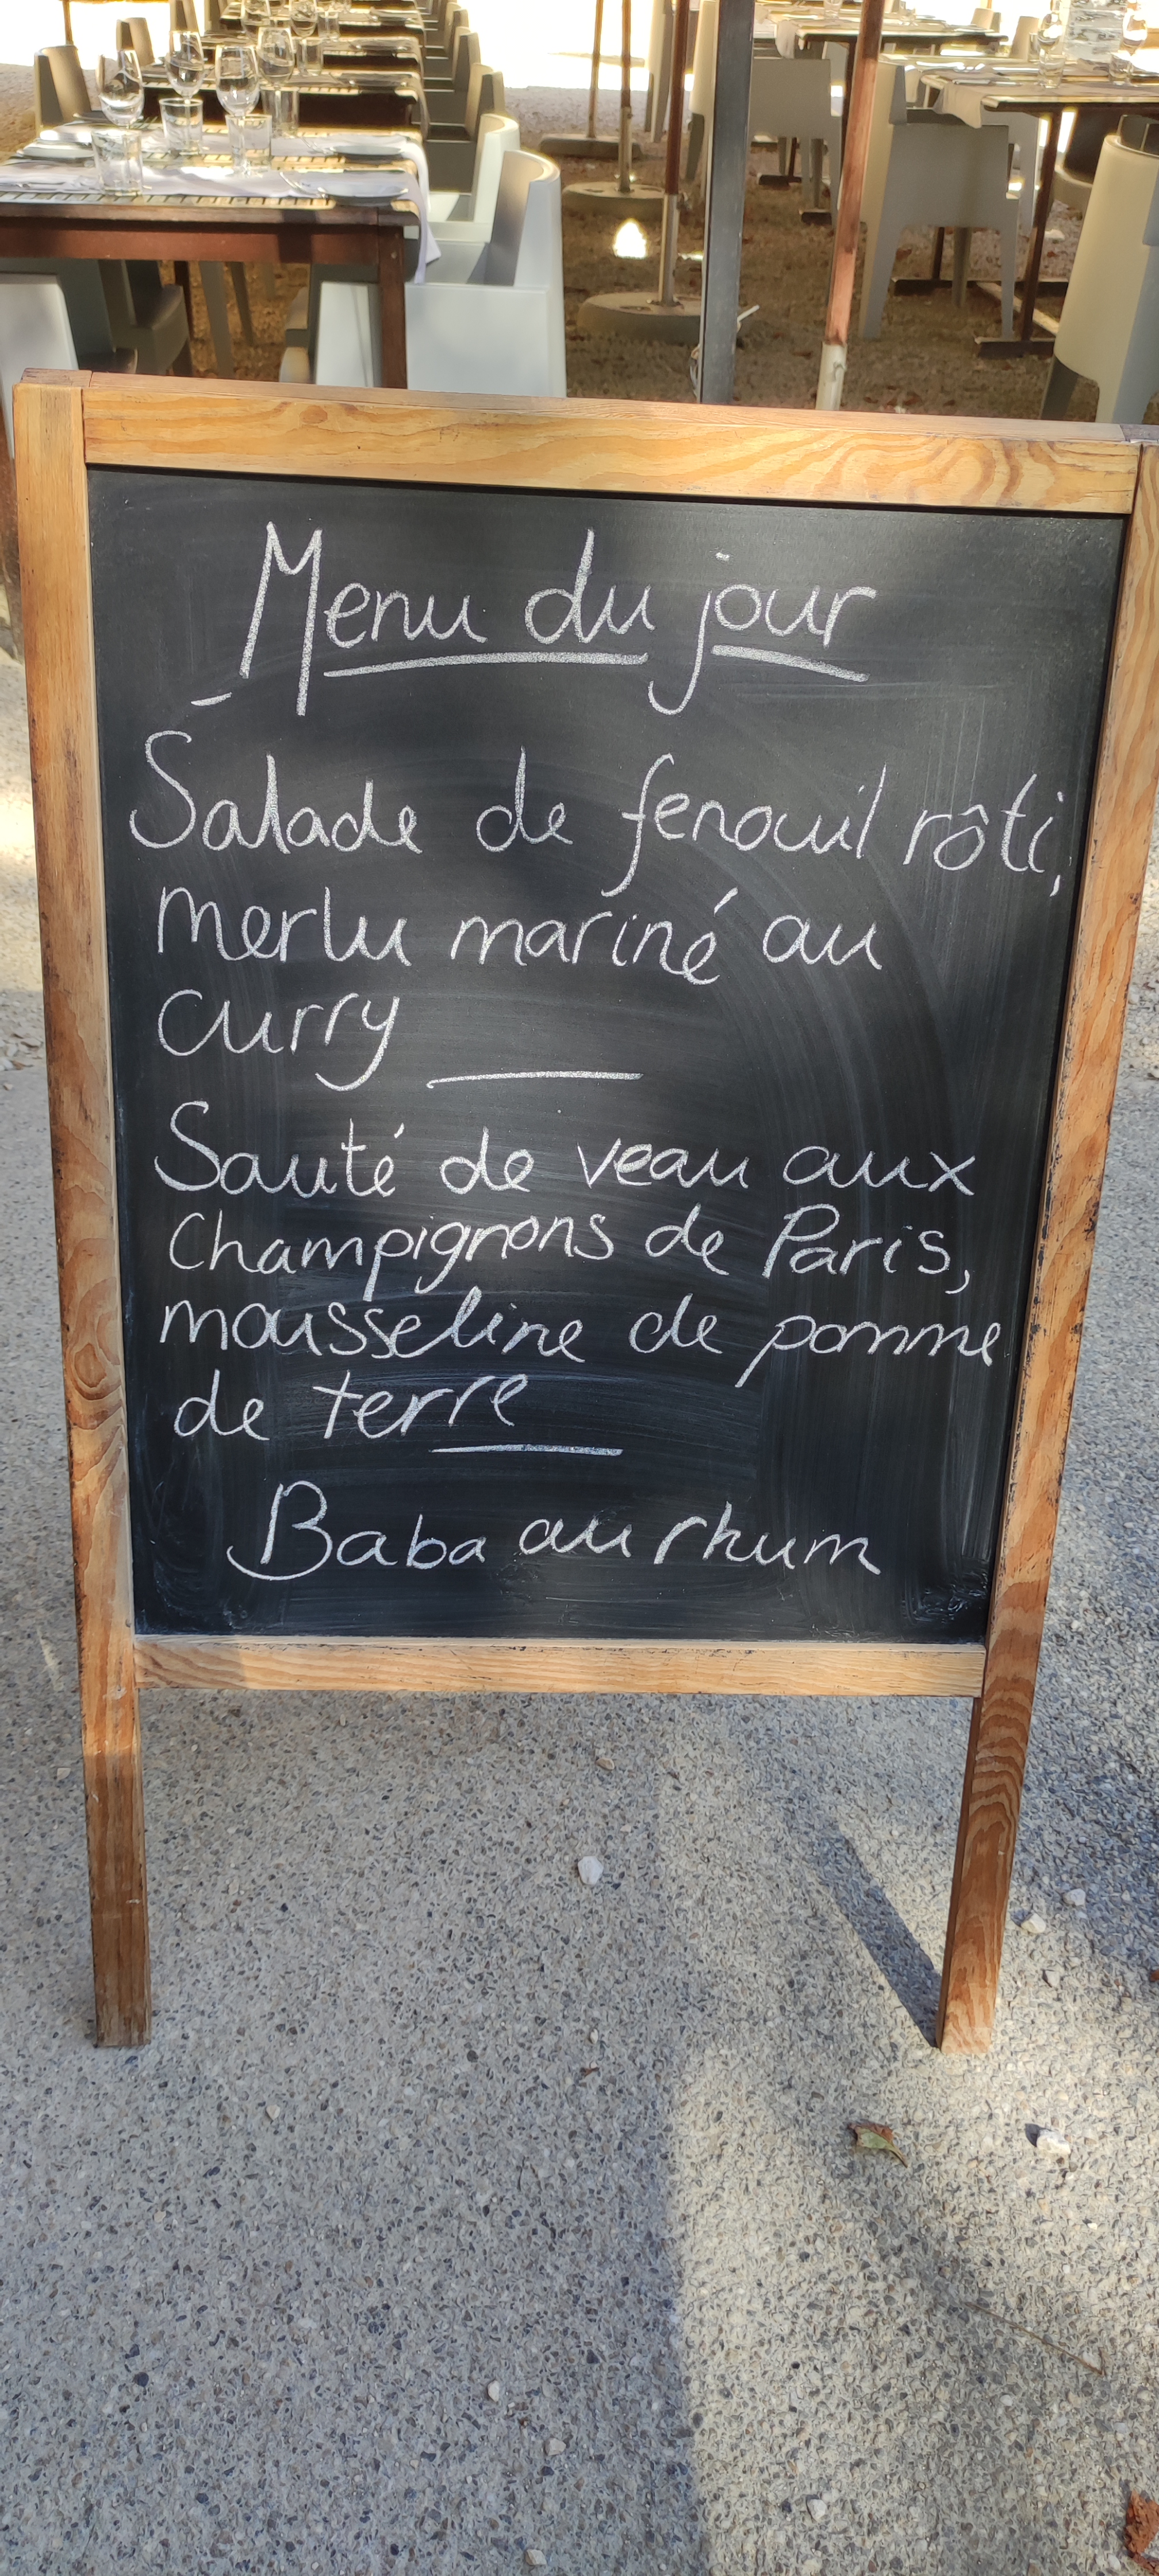 Menu du jour
Salade de fenouil rôti,
merlu mariné au
curry
Sauté de veau aux
Champignons de Paris,
mousseline de pomme
de terre
Baba au rhum